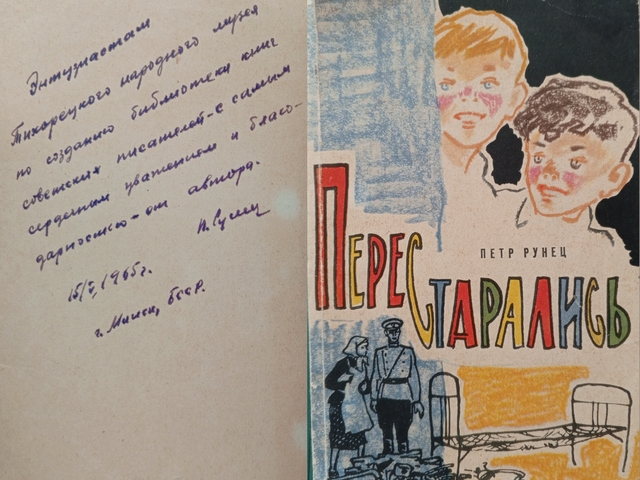 Энтузиастам
Тихорецкого народного музея
по созданию библиотеки книг
советских писателей - с самым
сердечным уважением и благо-
дарностью - от автора.
П. Рунец
15/V, 1965 г.
г. Минск, БССР.
ПЕТР РУНЕЦ
ПЕРЕСТАРАЛИСЬ